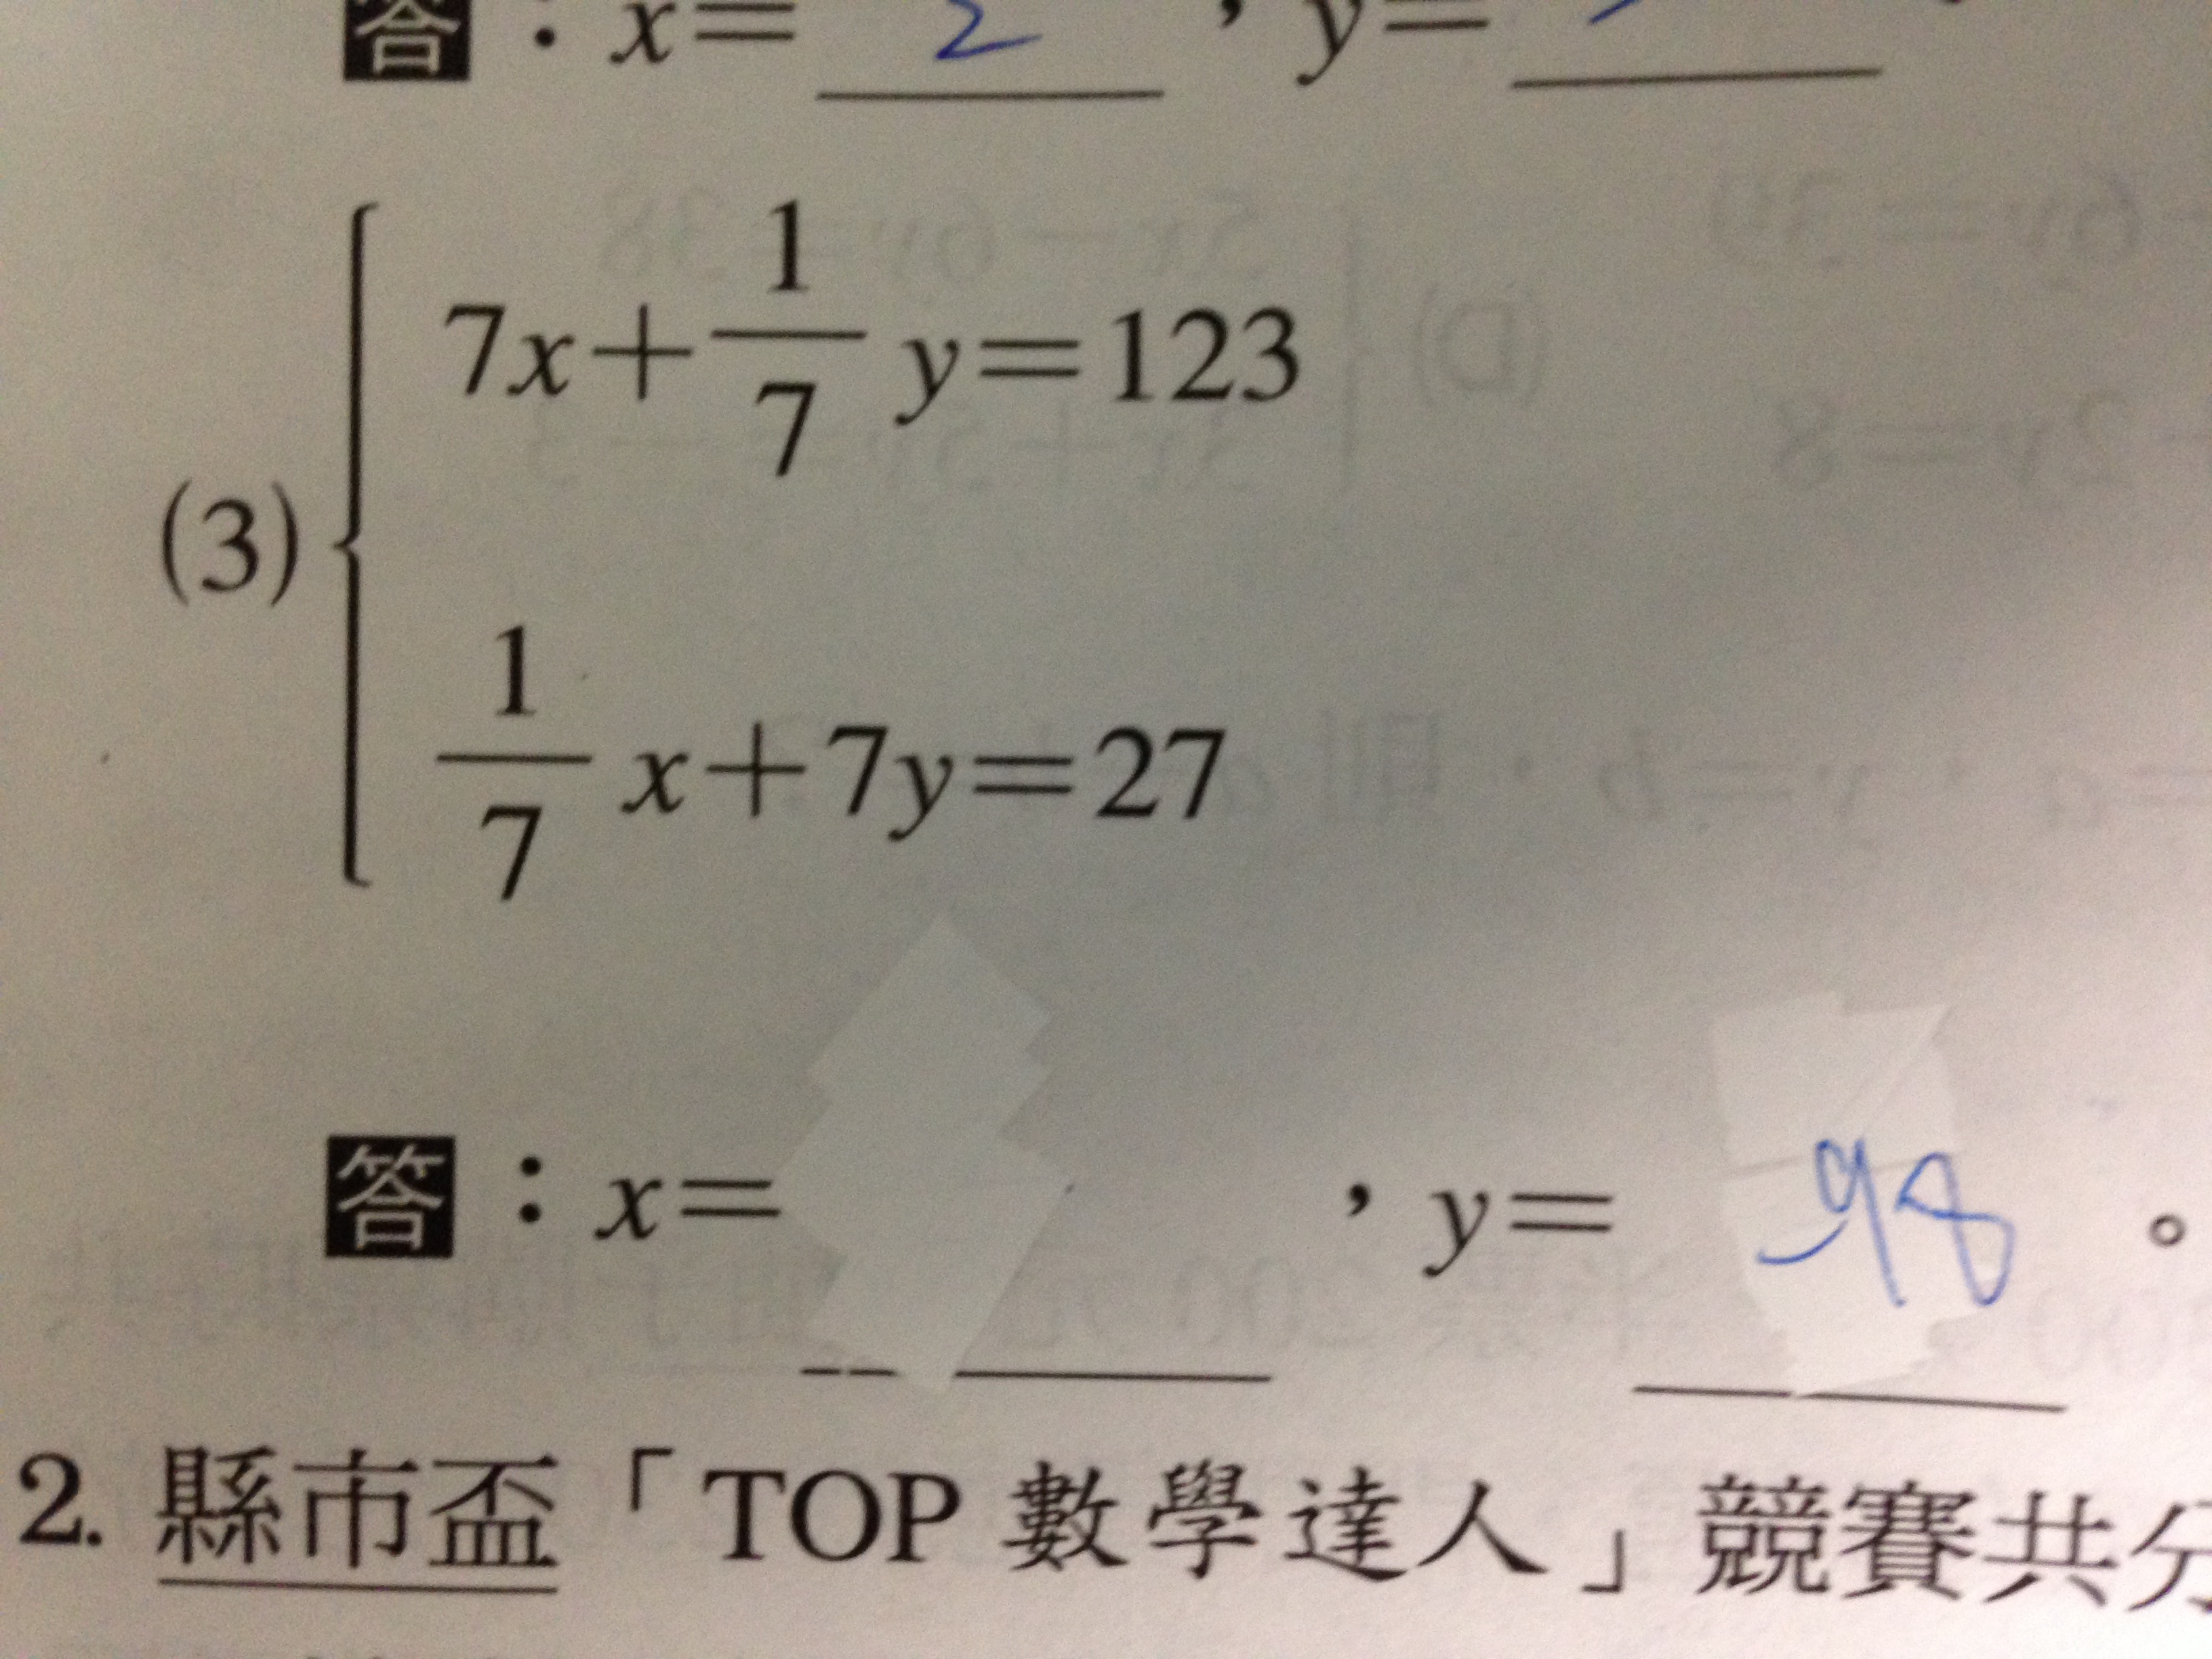 答：x= 2 ，y=
(3) { 7x+1/7 y=123
1/7 x+7y=27
答：x= ，y= 98 。
2. 縣市盃「TOP 數學達人」競賽共分